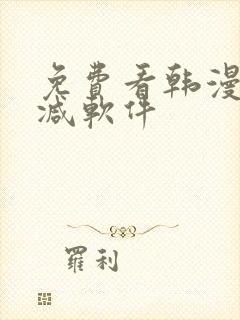 免費看韩漫
减軟件
羅利